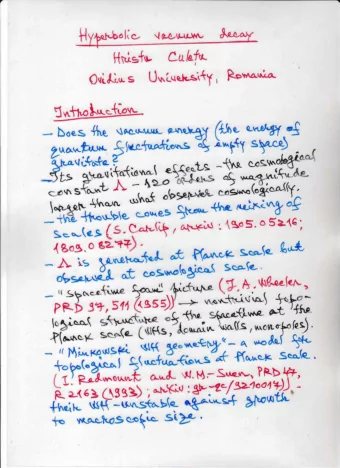 Hyperbolic vacuum decay
Hristu Culetu
Ovidius University, Romania
Introduction
- Does the vacuum energy (the energy of
quantum fluctuations of empty space)
gravitate?
- Its gravitational effects - the cosmological
constant Λ - 120 orders of magnitude
larger than what observed cosmologically.
- the trouble comes from the mixing of
scales (S. Carlip, arxiv: 1905.05216;
1809.08277).
- Λ is generated at Planck scale but
observed at cosmological scale.
- "spacetime foam" picture (J. A. Wheeler,
PRD 97, 511 (1955)) → nontrivial topo-
logical structure of the spacetime at the
Planck scale (WHs, domain walls, monopoles).
- "Minkowski WH geometry" - a model for
topological fluctuations at Planck scale.
(I. Redmount and W.-M. Suen, PRD 47,
R 2163 (1993); arxiv: gr-qc/9210017) -
their WH - unstable against growth
to macroscopic size.